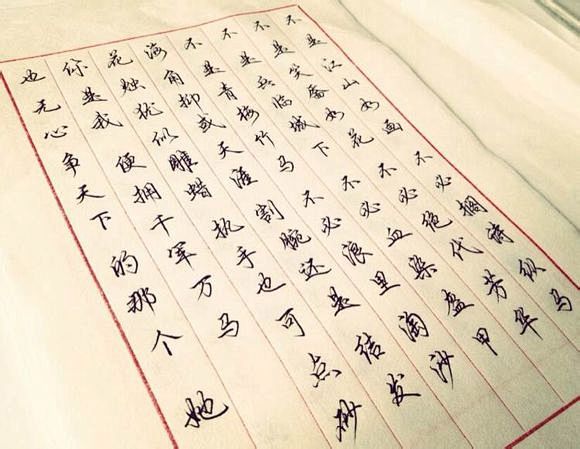 不是江山如画 不必诗纵马
不是笑靥如花 不必绝代芳华
不是兵临城下 不必血染盔甲
不是青梅竹马 不必浪里淘沙
海角抑或天涯 割腕还是结发
花烛犹似雕蜡 执手也可点砂
你是我 便拥千军万马
也无心争天下的那个 她